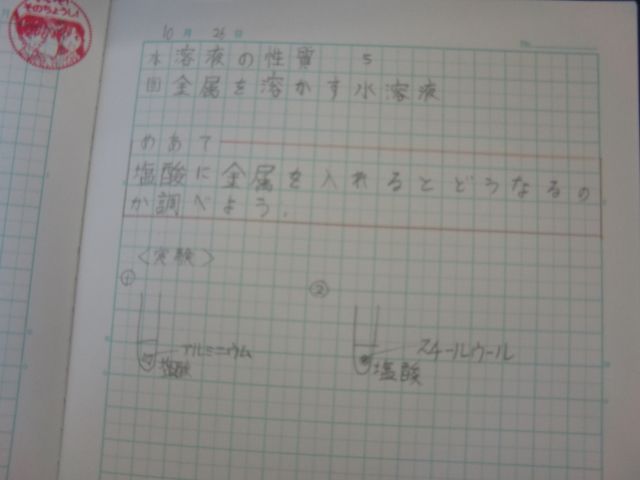 そのちょうし!
10月 26日
水溶液の性質 5
金属を溶かす水溶液
めあて
塩酸に金属を入れるとどうなるの
か調べよう。
<実験>
① ②
アルミニウム
塩酸
スチールウール
塩酸